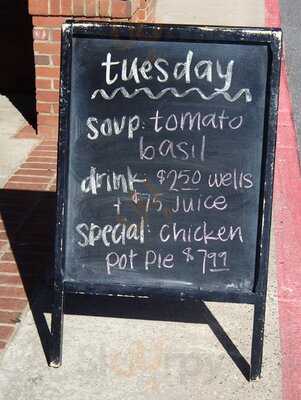 tuesday
soup: tomato
basil
drink $2.50 wells
+ $.75 Juice
special: chicken
pot pie $7.99